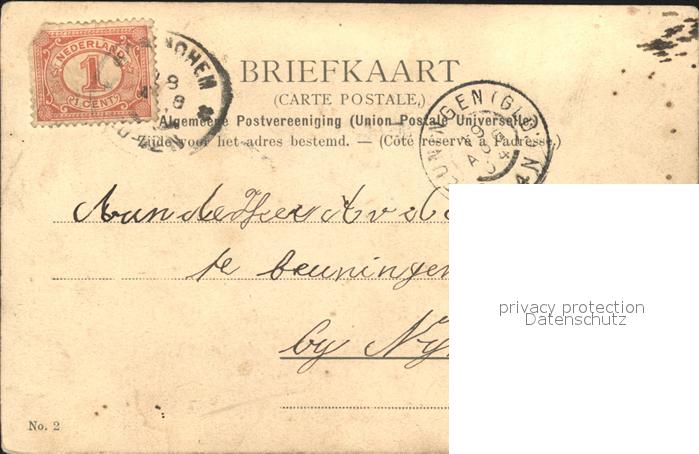 NEDERLAND
1
1 CENT
BRIEFKAART
(CARTE POSTALE,)
Algemeene Postvereeniging (Union Postale Universelle)
Zijde voor het adres bestemd. — (Côté réservé à l'adresse.)
Aan de Heer
te beuningen
by Ny
privacy protection
Datenschutz
No. 2